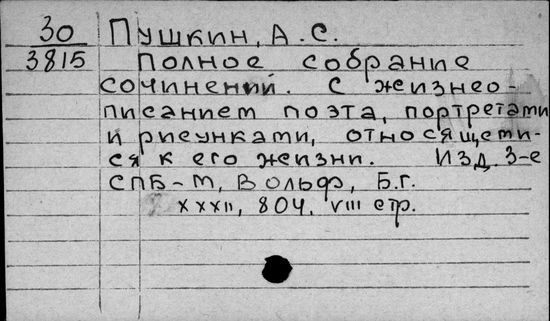 30
3815
Пушкин, А.С.
Полное собрание
сочинений. С жизнео-
писанием поэта, портретами
и рисунками, относящеми-
ся к его жизни. Изд. 3-е
СПБ-М, Вольф, Б.г.
XXXII, 804, VIII стр.